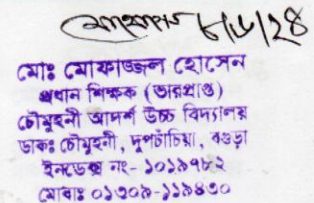 ৮/৬/২৪
মোঃ মোফাজ্জল হোসেন
প্রধান শিক্ষক (ভারপ্রাপ্ত)
চৌমুহনী আদর্শ উচ্চ বিদ্যালয়
ডাকঃ চৌমুহনী, দুপচাঁচিয়া, বগুড়া
ইনডেক্স নং- ১০১৯৭৮২
মোবাঃ ০১৩০৯-১১৯৪৩০